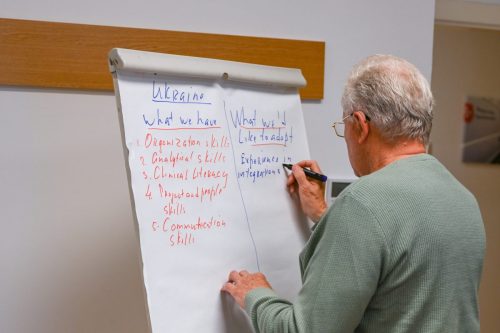 Ukraine
What we have
1. Organization skills
2. Analytical skills
3. Clinical Literacy
4. Project and people
skills
5. Communication
skills
What we'd
like to adopt
Experience in
integration